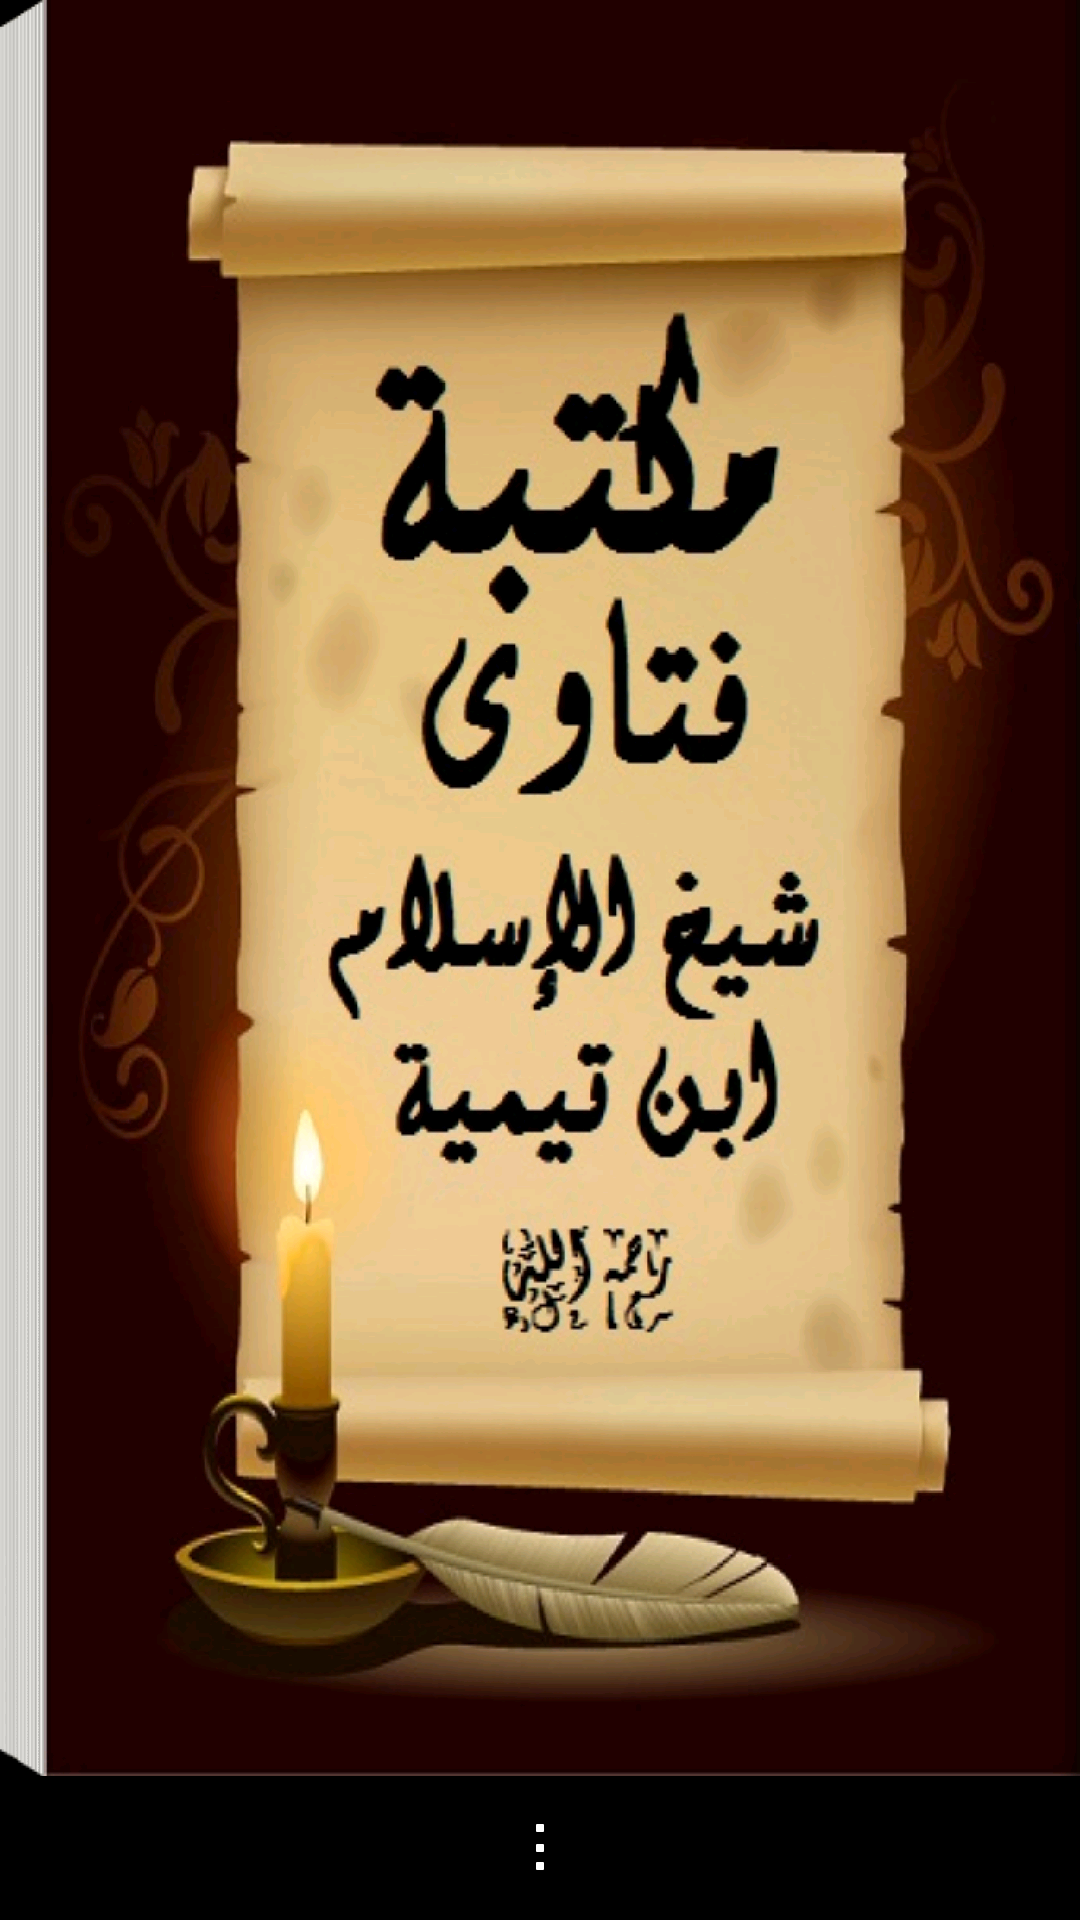 مكتبة
فتاوى
شيخ الإسلام
ابن تيمية
رحمه الله